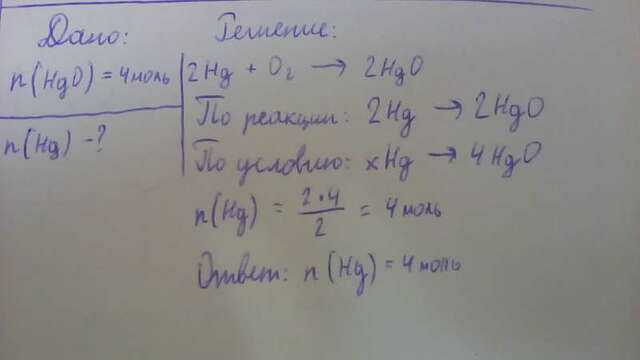 Дано:
n(HgO) = 4 моль
n(Hg) - ?
Решение:
2Hg + O₂ → 2HgO
По реакции: 2Hg → 2HgO
По условию: xHg → 4HgO
n(Hg) = 2•4/2 = 4 моль
Ответ: n(Hg) = 4 моль